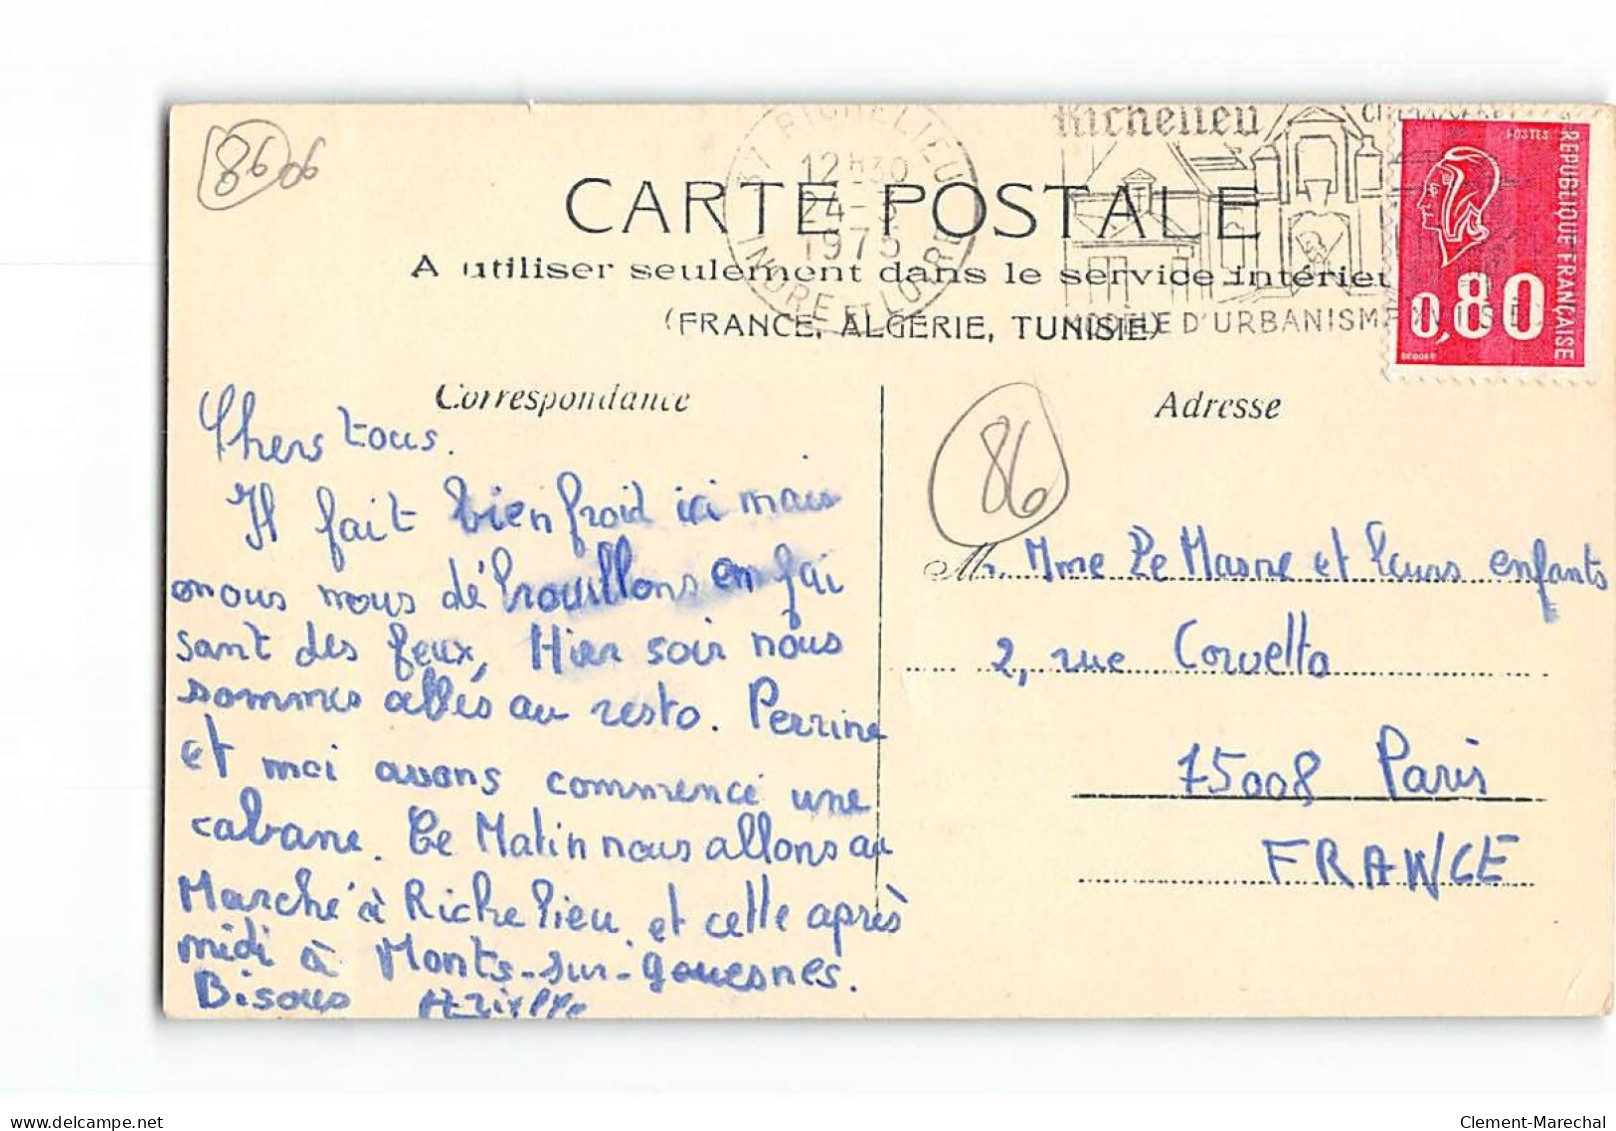 8606
37 RICHELIEU
12H30
24-3
1975
INDRE ET LOIRE
Richelieu
MODELE D'URBANISME XVII SIE
POSTES
REPUBLIQUE FRANÇAISE
0,80
BEQUET
CARTE POSTALE
A utiliser seulement dans le service intérieur
(FRANCE, ALGERIE, TUNISIE)
Correspondance
Chers tous.
Il fait bien froid ici mais
nous nous débrouillons en fai
sant des feux, Hier soir nous
sommes allés au resto. Perrine
et moi avons commencé une
cabane. Ce Matin nous allons au
Marché à Richelieu et cette après
midi à Monts-sur-Gouesnes.
Bisous
Adresse
86
M. Mme Le Masne et leurs enfants
2, rue Corvetto
75008 Paris
FRANCE
Clement-Marechal